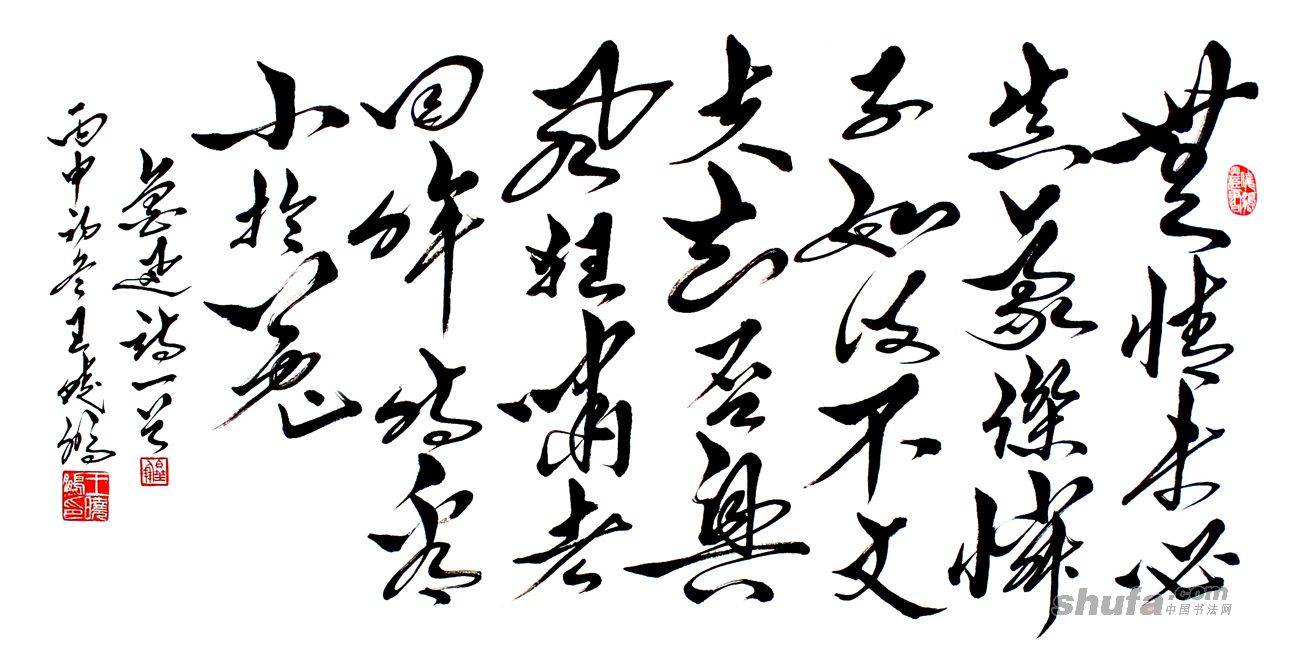 無情未必
真豪傑憐
子如何不丈
夫知否興
風狂嘯者
回眸時看
小於菟
魯迅詩一首
丙申初冬王曉鴻
王曉鴻印
shufa.com
中国书法网